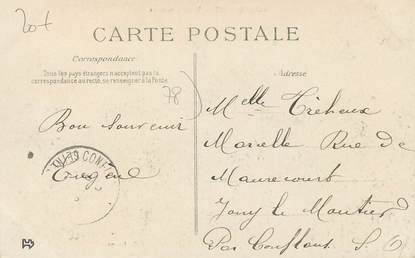 20f
CARTE POSTALE
Correspondance
Tous les pays étrangers n'acceptent pas la
correspondance au recto, se renseigner à la Poste.
Adresse
78
Bon Souvenir
Eugène
CONF
Melle Tréheux
Marielle Rue de
Maurecourt
Jouy le Moutier
Par Conflans S. O